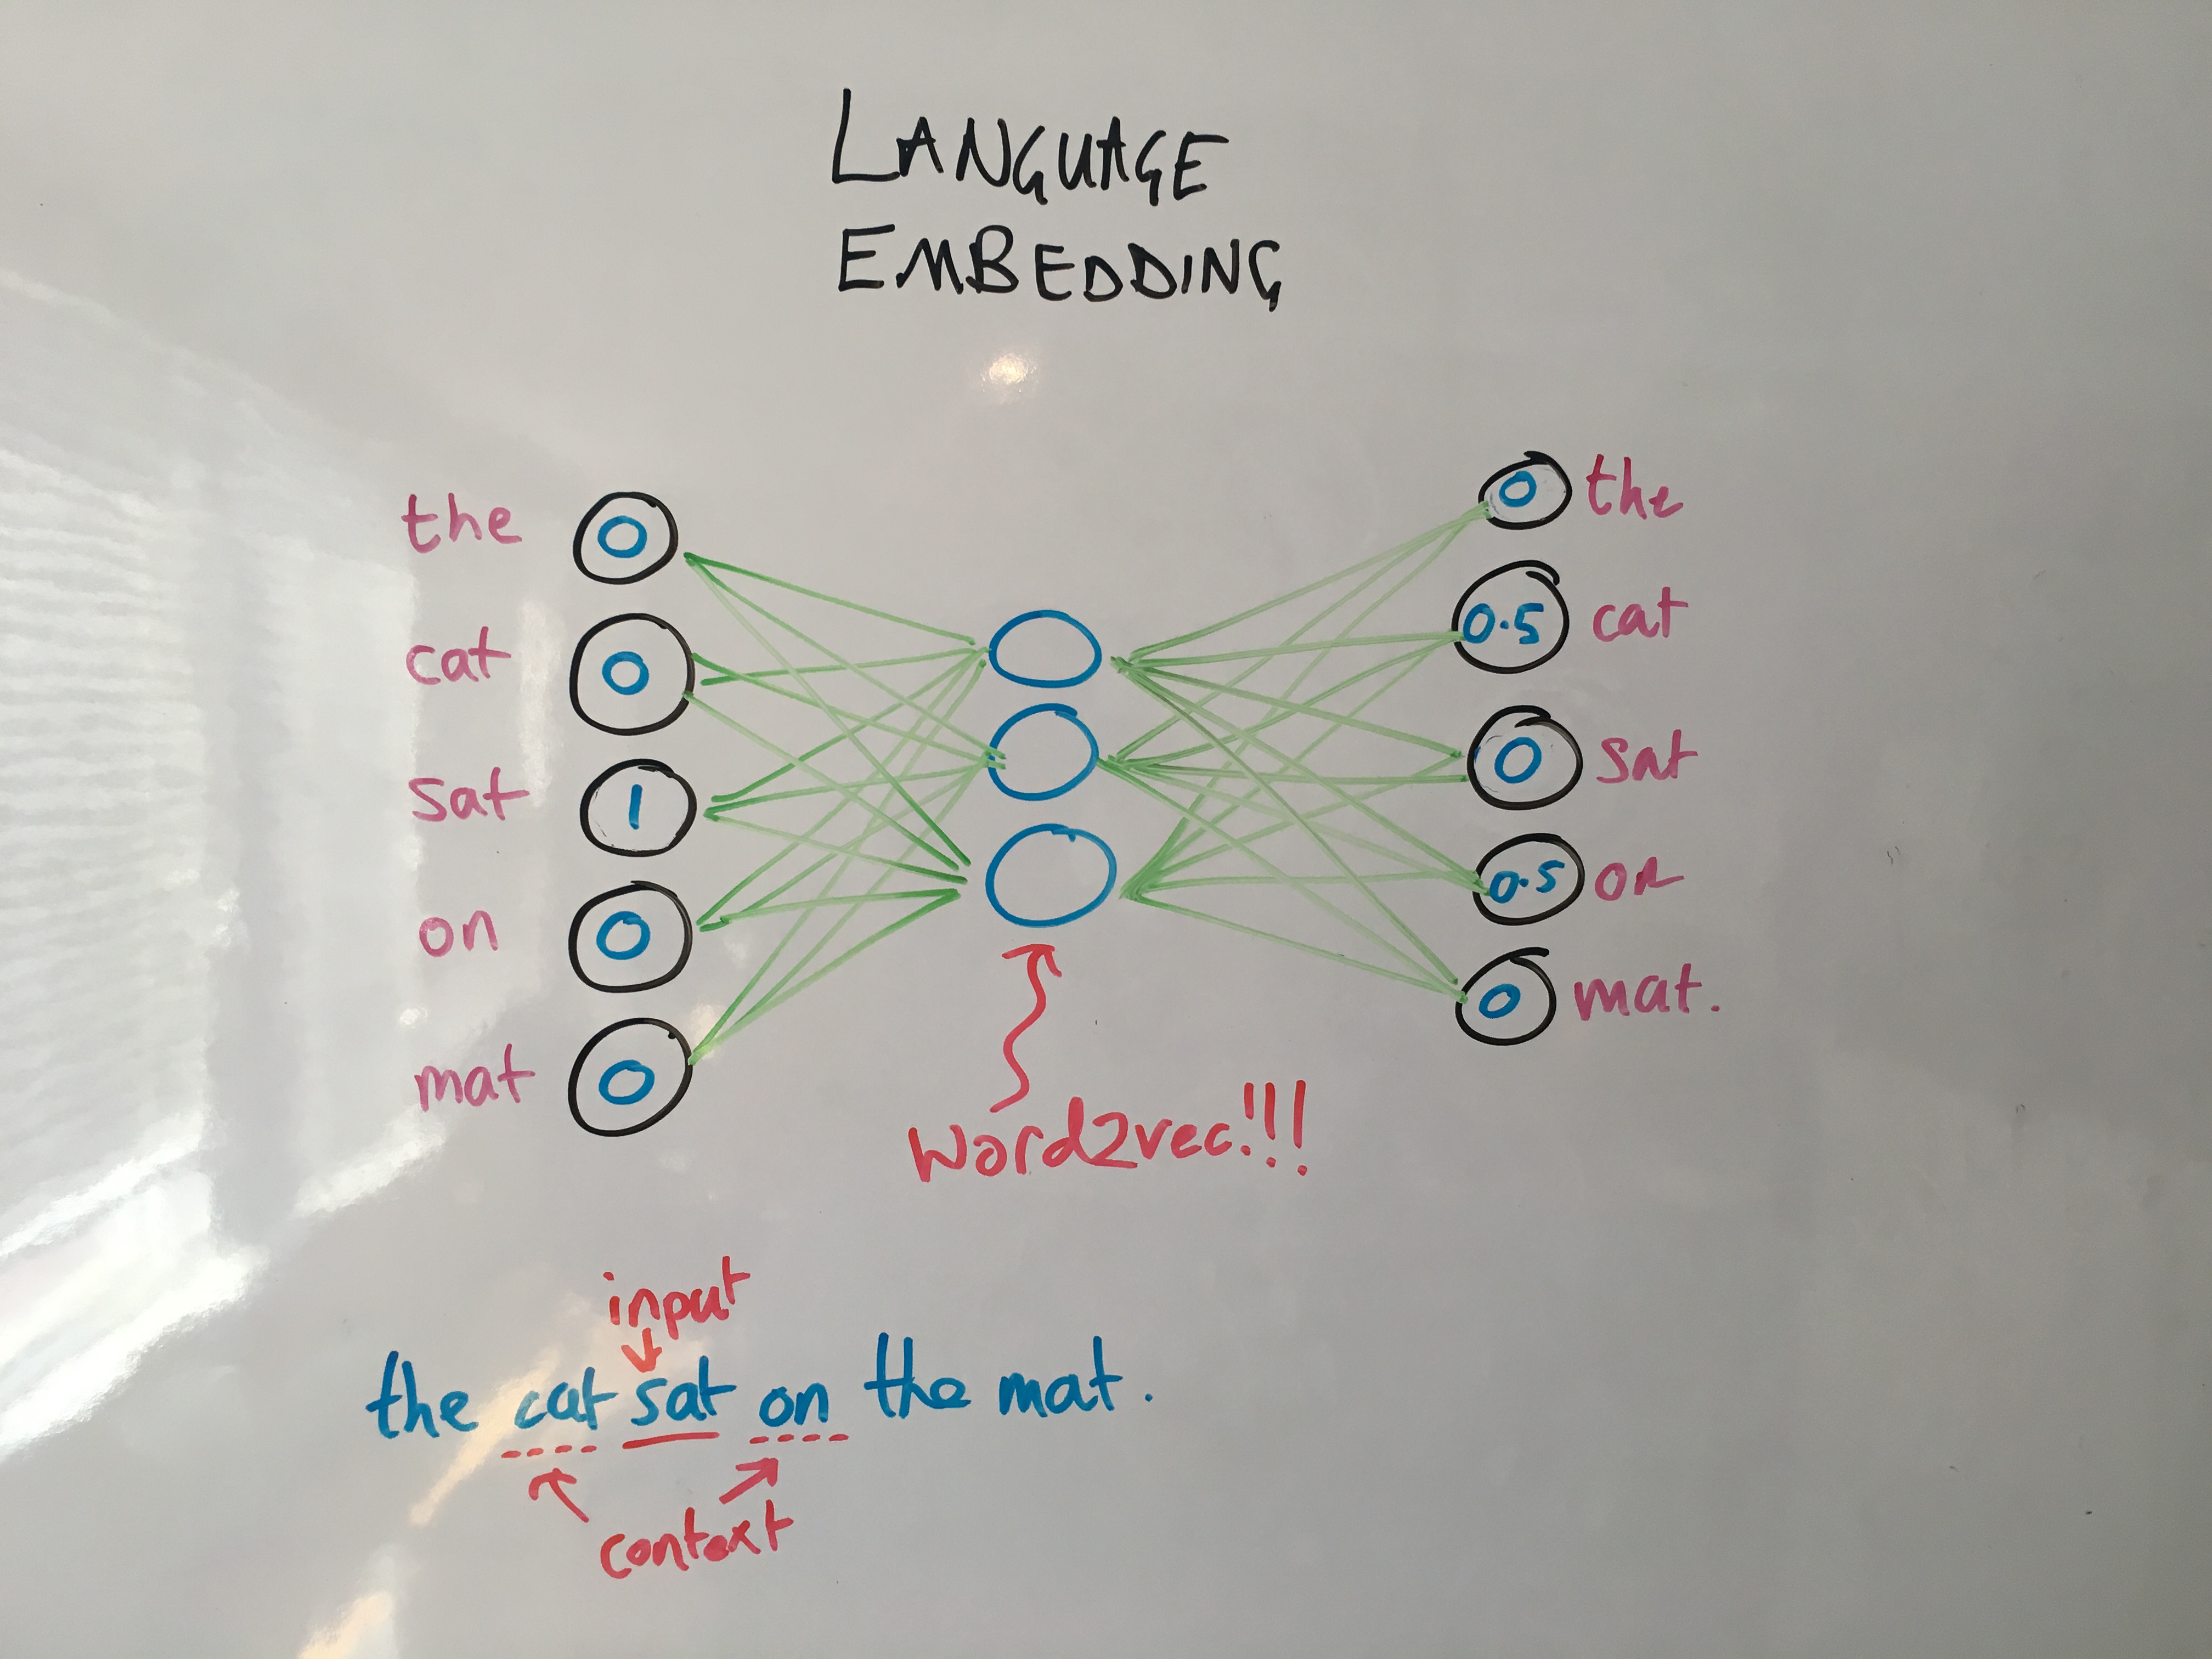 LANGUAGE
EMBEDDING
the 0
cat 0
sat 1
on 0
mat 0
0 the
0.5 cat
0 sat
0.5 on
0 mat.
word2vec!!!
input
the cat sat on the mat.
context